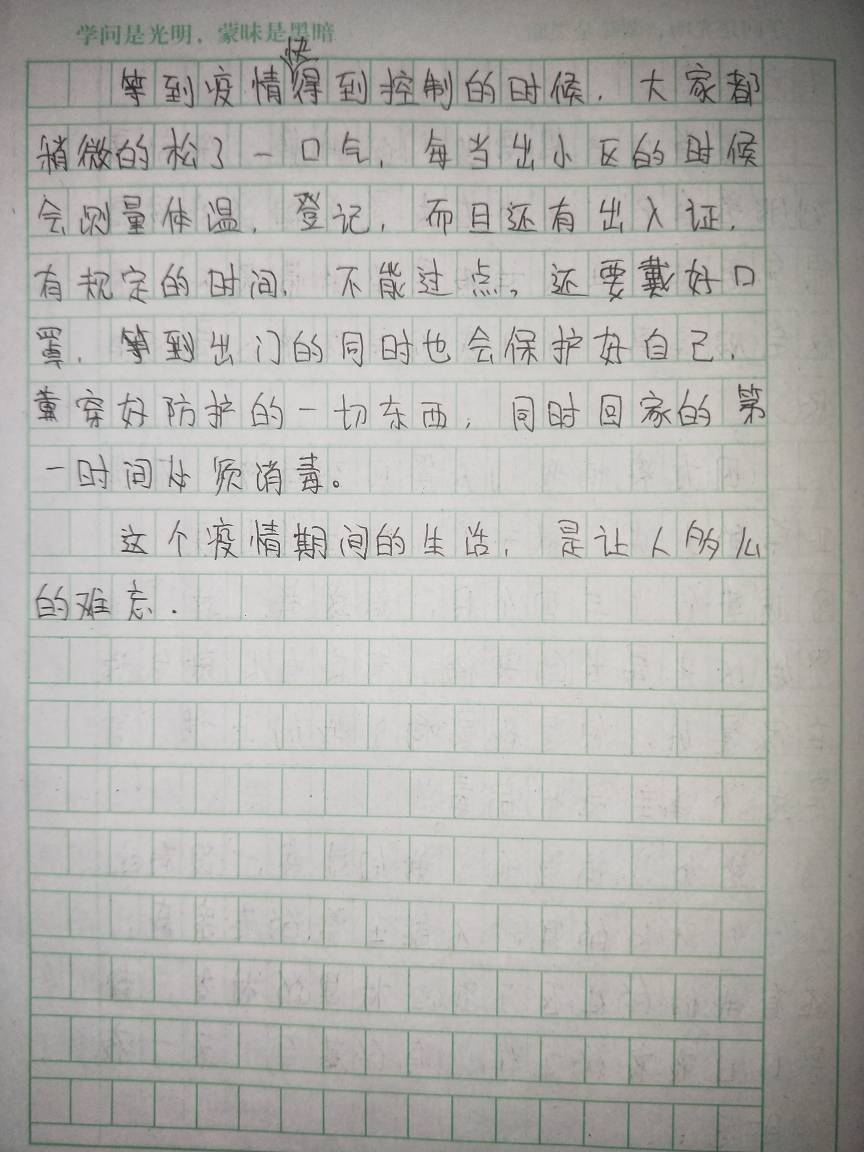 学问是光明，蒙昧是黑暗
等到疫情快得到控制的时候，大家都
稍微的松了一口气，每当出小区的时候
会测量体温，登记，而且还有出入证，
有规定的时间，不能过点。还要戴好口
罩，等到出门的同时也会保护好自己，
穿好防护的一切东西，同时回家的第
一时间必须消毒。
这个疫情期间的生活，是让人多么
的难忘.